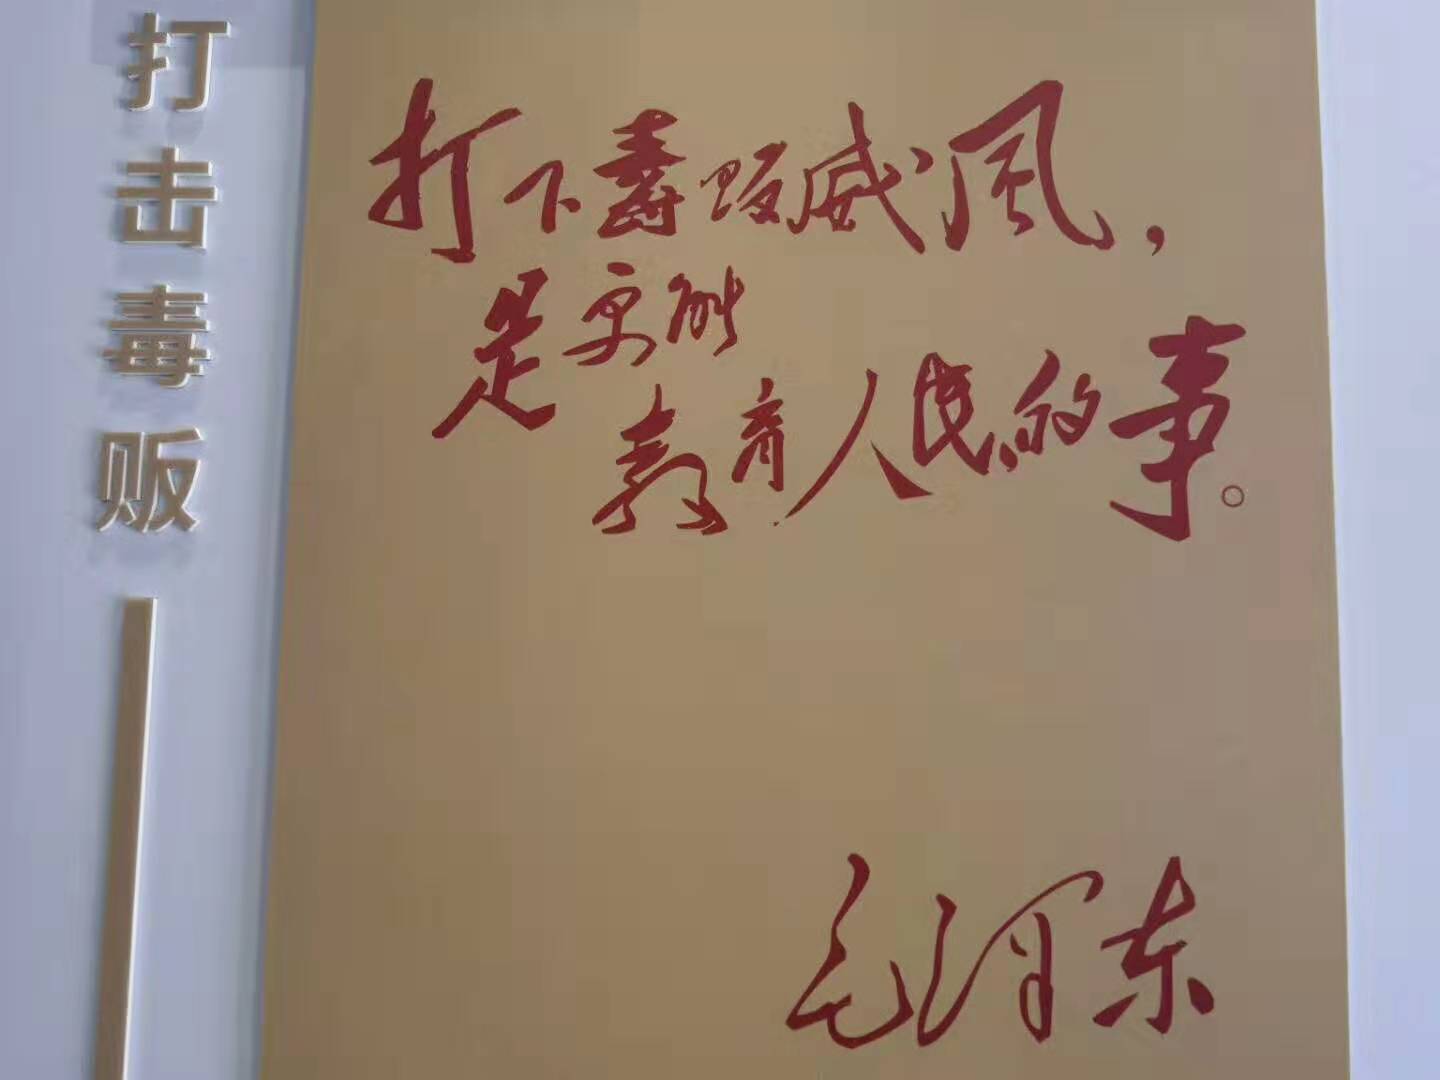 打击毒贩
打下毒贩威风，
是更能
教育人民的事。
毛泽东